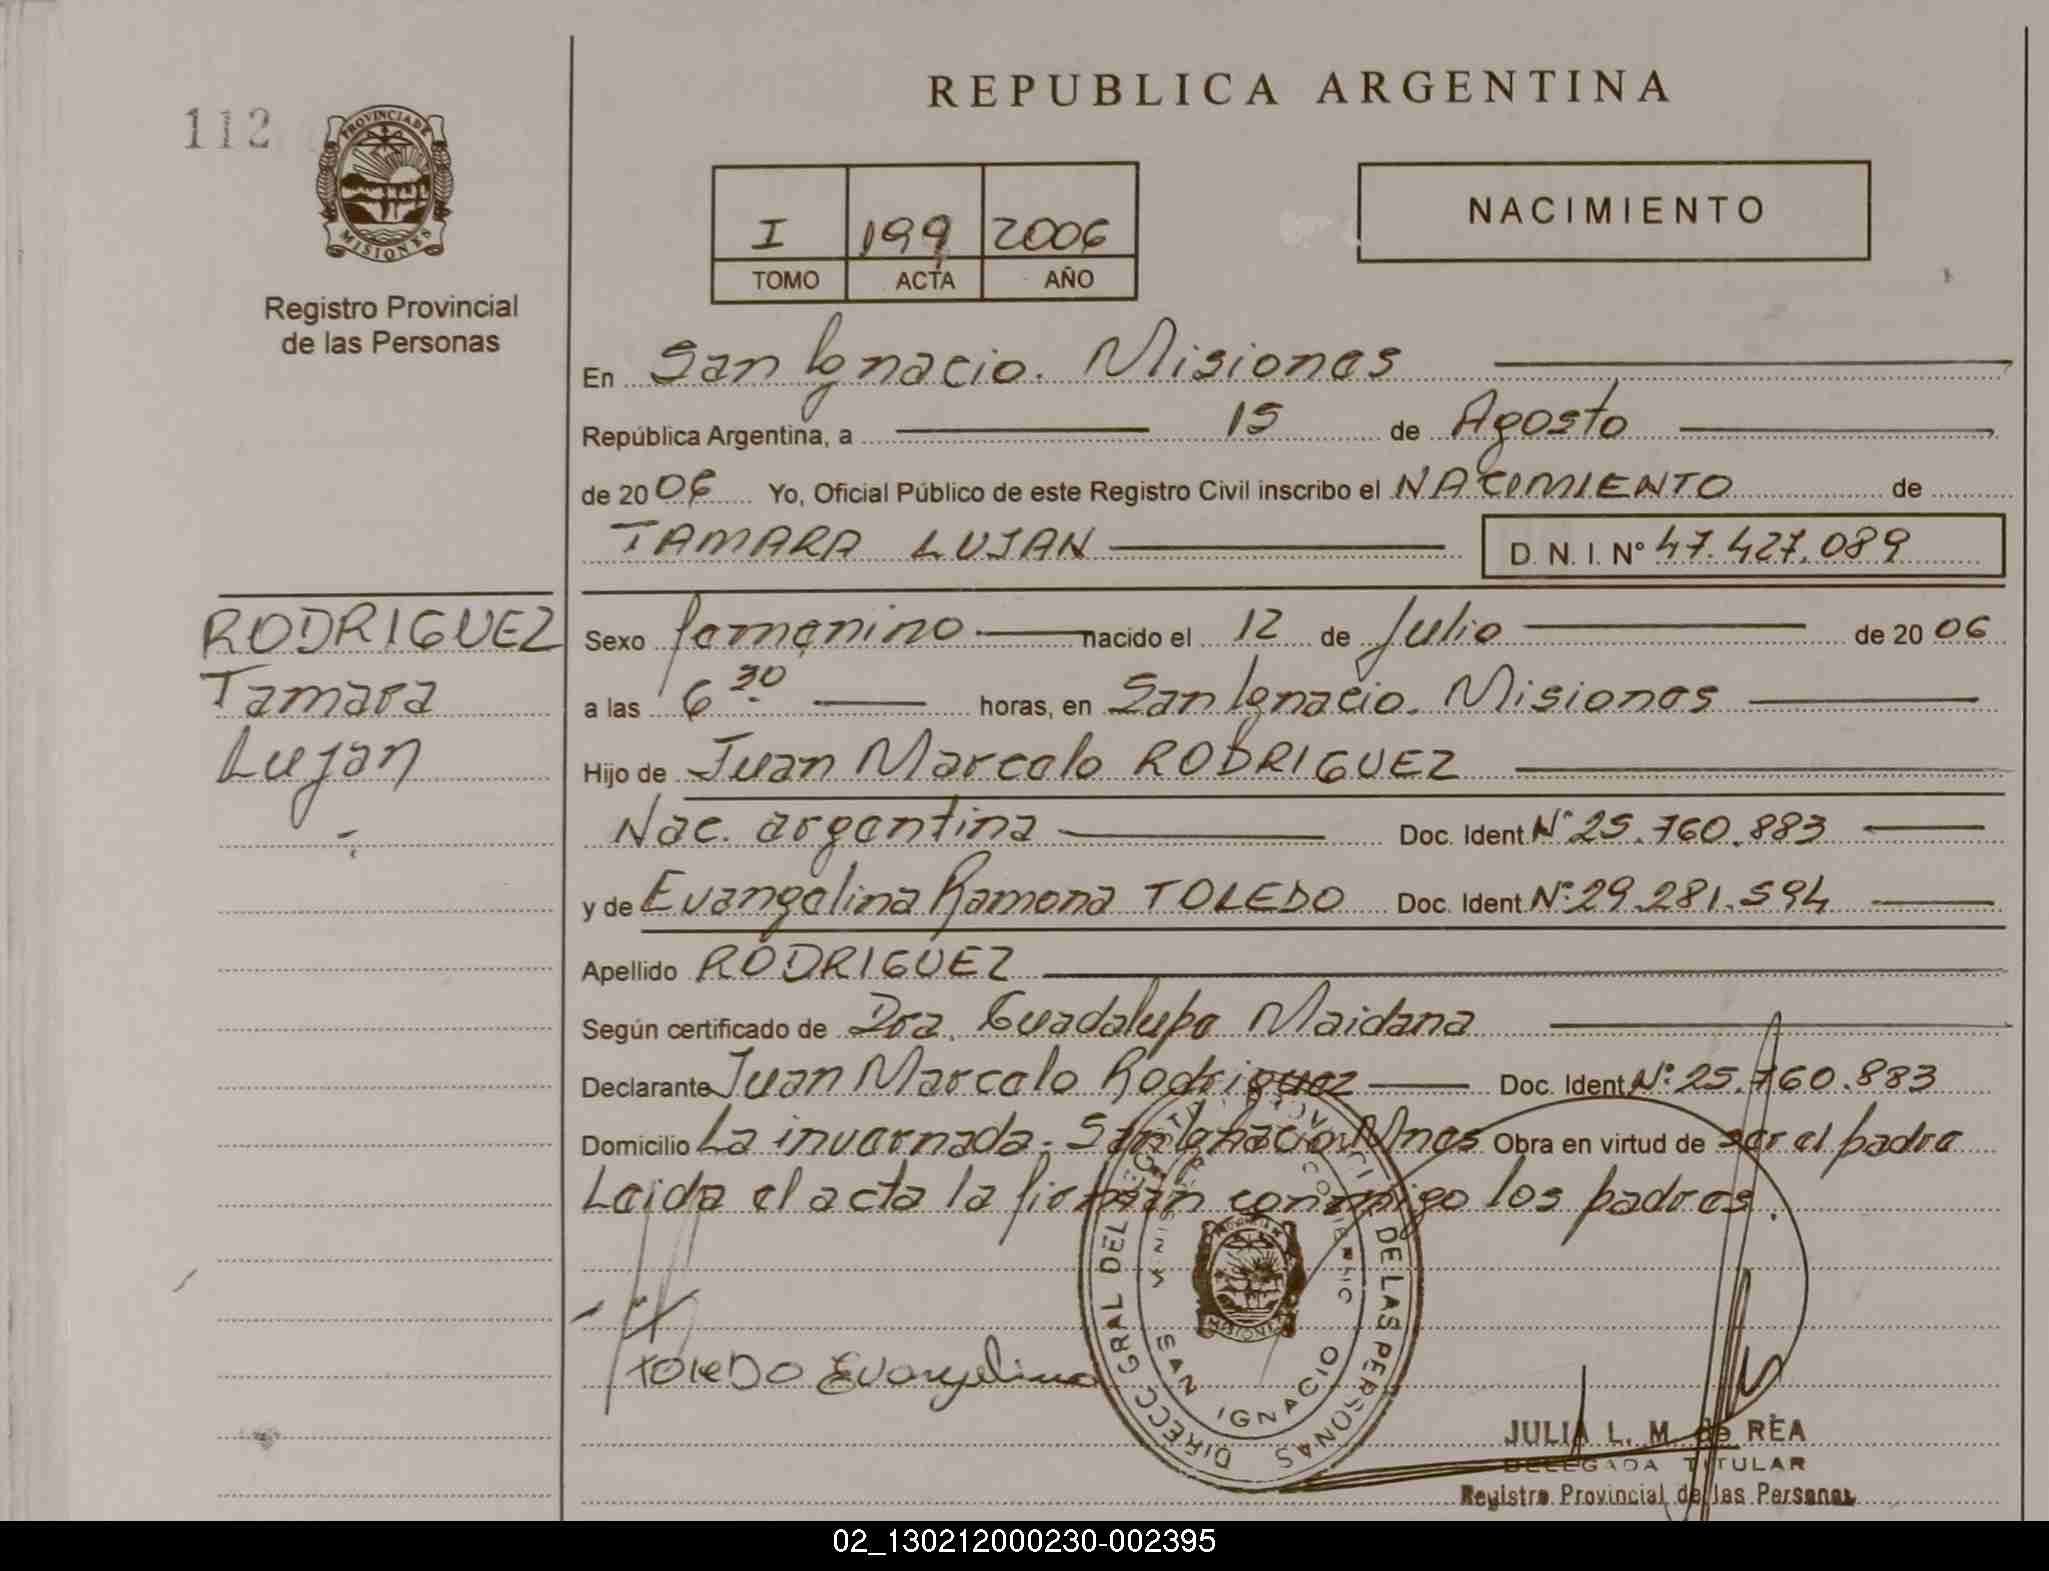 REPUBLICA ARGENTINA
112
PROVINCIA DE
MISIONES
Registro Provincial
de las Personas
I 199 2006
TOMO ACTA AÑO
NACIMIENTO
En San Ignacio. Misiones
República Argentina, a 15 de Agosto
de 2006 Yo, Oficial Público de este Registro Civil inscribo el NACIMIENTO de
TAMARA LUJAN D. N. I. N° 47.427.089
RODRIGUEZ
Tamara
Lujan
Sexo femenino nacido el 12 de Julio de 2006
a las 6 30 horas, en San Ignacio. Misiones
Hijo de Juan Marcelo RODRIGUEZ
Nac. argentina Doc. Ident N° 25.760.883
y de Evangelina Ramona TOLEDO Doc. Ident N° 29.281.594
Apellido RODRIGUEZ
Según certificado de Dra. Guadalupe Maidana
Declarante Juan Marcelo Rodriguez Doc. Ident N° 25.760.883
Domicilio La invernada. San Ignacio Mnes Obra en virtud de ser el padre
Leida el acta la firman conmigo los padres.
TOLEDO Evangelina
DIRECC GRAL DEL DE LAS PERSONAS
SAN IGNACIO
MISIONES
JULIA L. M. de REA
DELEGADA TITULAR
Registro Provincial de las Personas
02_130212000230-002395